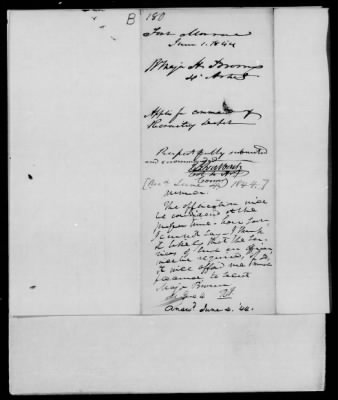 B 180
Fort Monroe
June 1. 1844
Major H. Brown
4" Arty
Applies for command of
Recruiting Depot
Respectfully submitted
and recommended
[Rec'd June 4th 1844.]
The application will
be considered at the
proper time -
I cannot say. I think
it likely that the Ser-
vices of such an officer
will be required, & if so,
it will afford me much
pleasure to select
Major Brown
June 4
Answd June 4. '44.